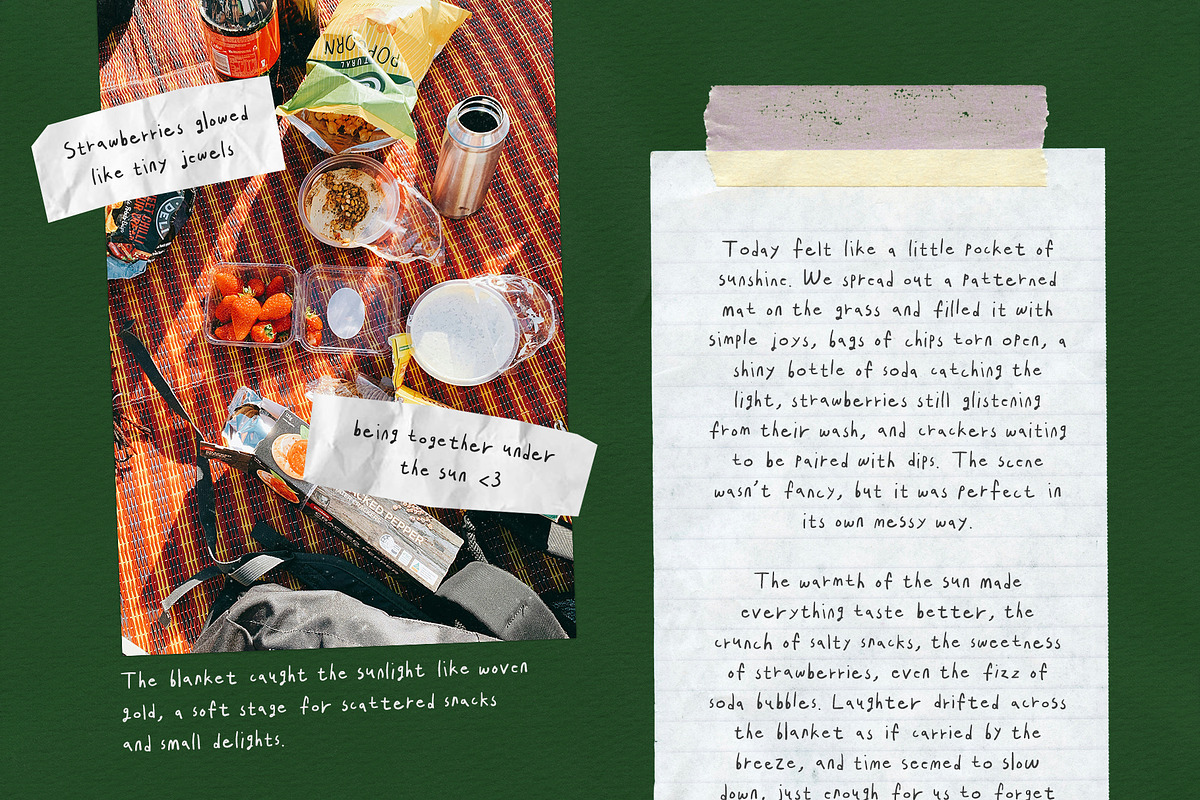 POPCORN
Strawberries glowed
like tiny jewels
being together under
the sun <3
CRACKED PEPPER
The blanket caught the sunlight like woven
gold, a soft stage for scattered snacks
and small delights.
Today felt like a little pocket of
sunshine. We spread out a patterned
mat on the grass and filled it with
simple joys, bags of chips torn open, a
shiny bottle of soda catching the
light, strawberries still glistening
from their wash, and crackers waiting
to be paired with dips. The scene
wasn't fancy, but it was perfect in
its own messy way.
The warmth of the sun made
everything taste better, the
crunch of salty snacks, the sweetness
of strawberries, even the fizz of
soda bubbles. Laughter drifted across
the blanket as if carried by the
breeze, and time seemed to slow
down, just enough for us to forget